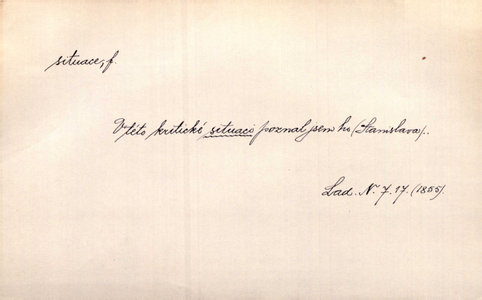 situace, f.
V této kritické situaci poznal jsem ho (Stanislava)..
Lad. N. 7. 17. (1855).